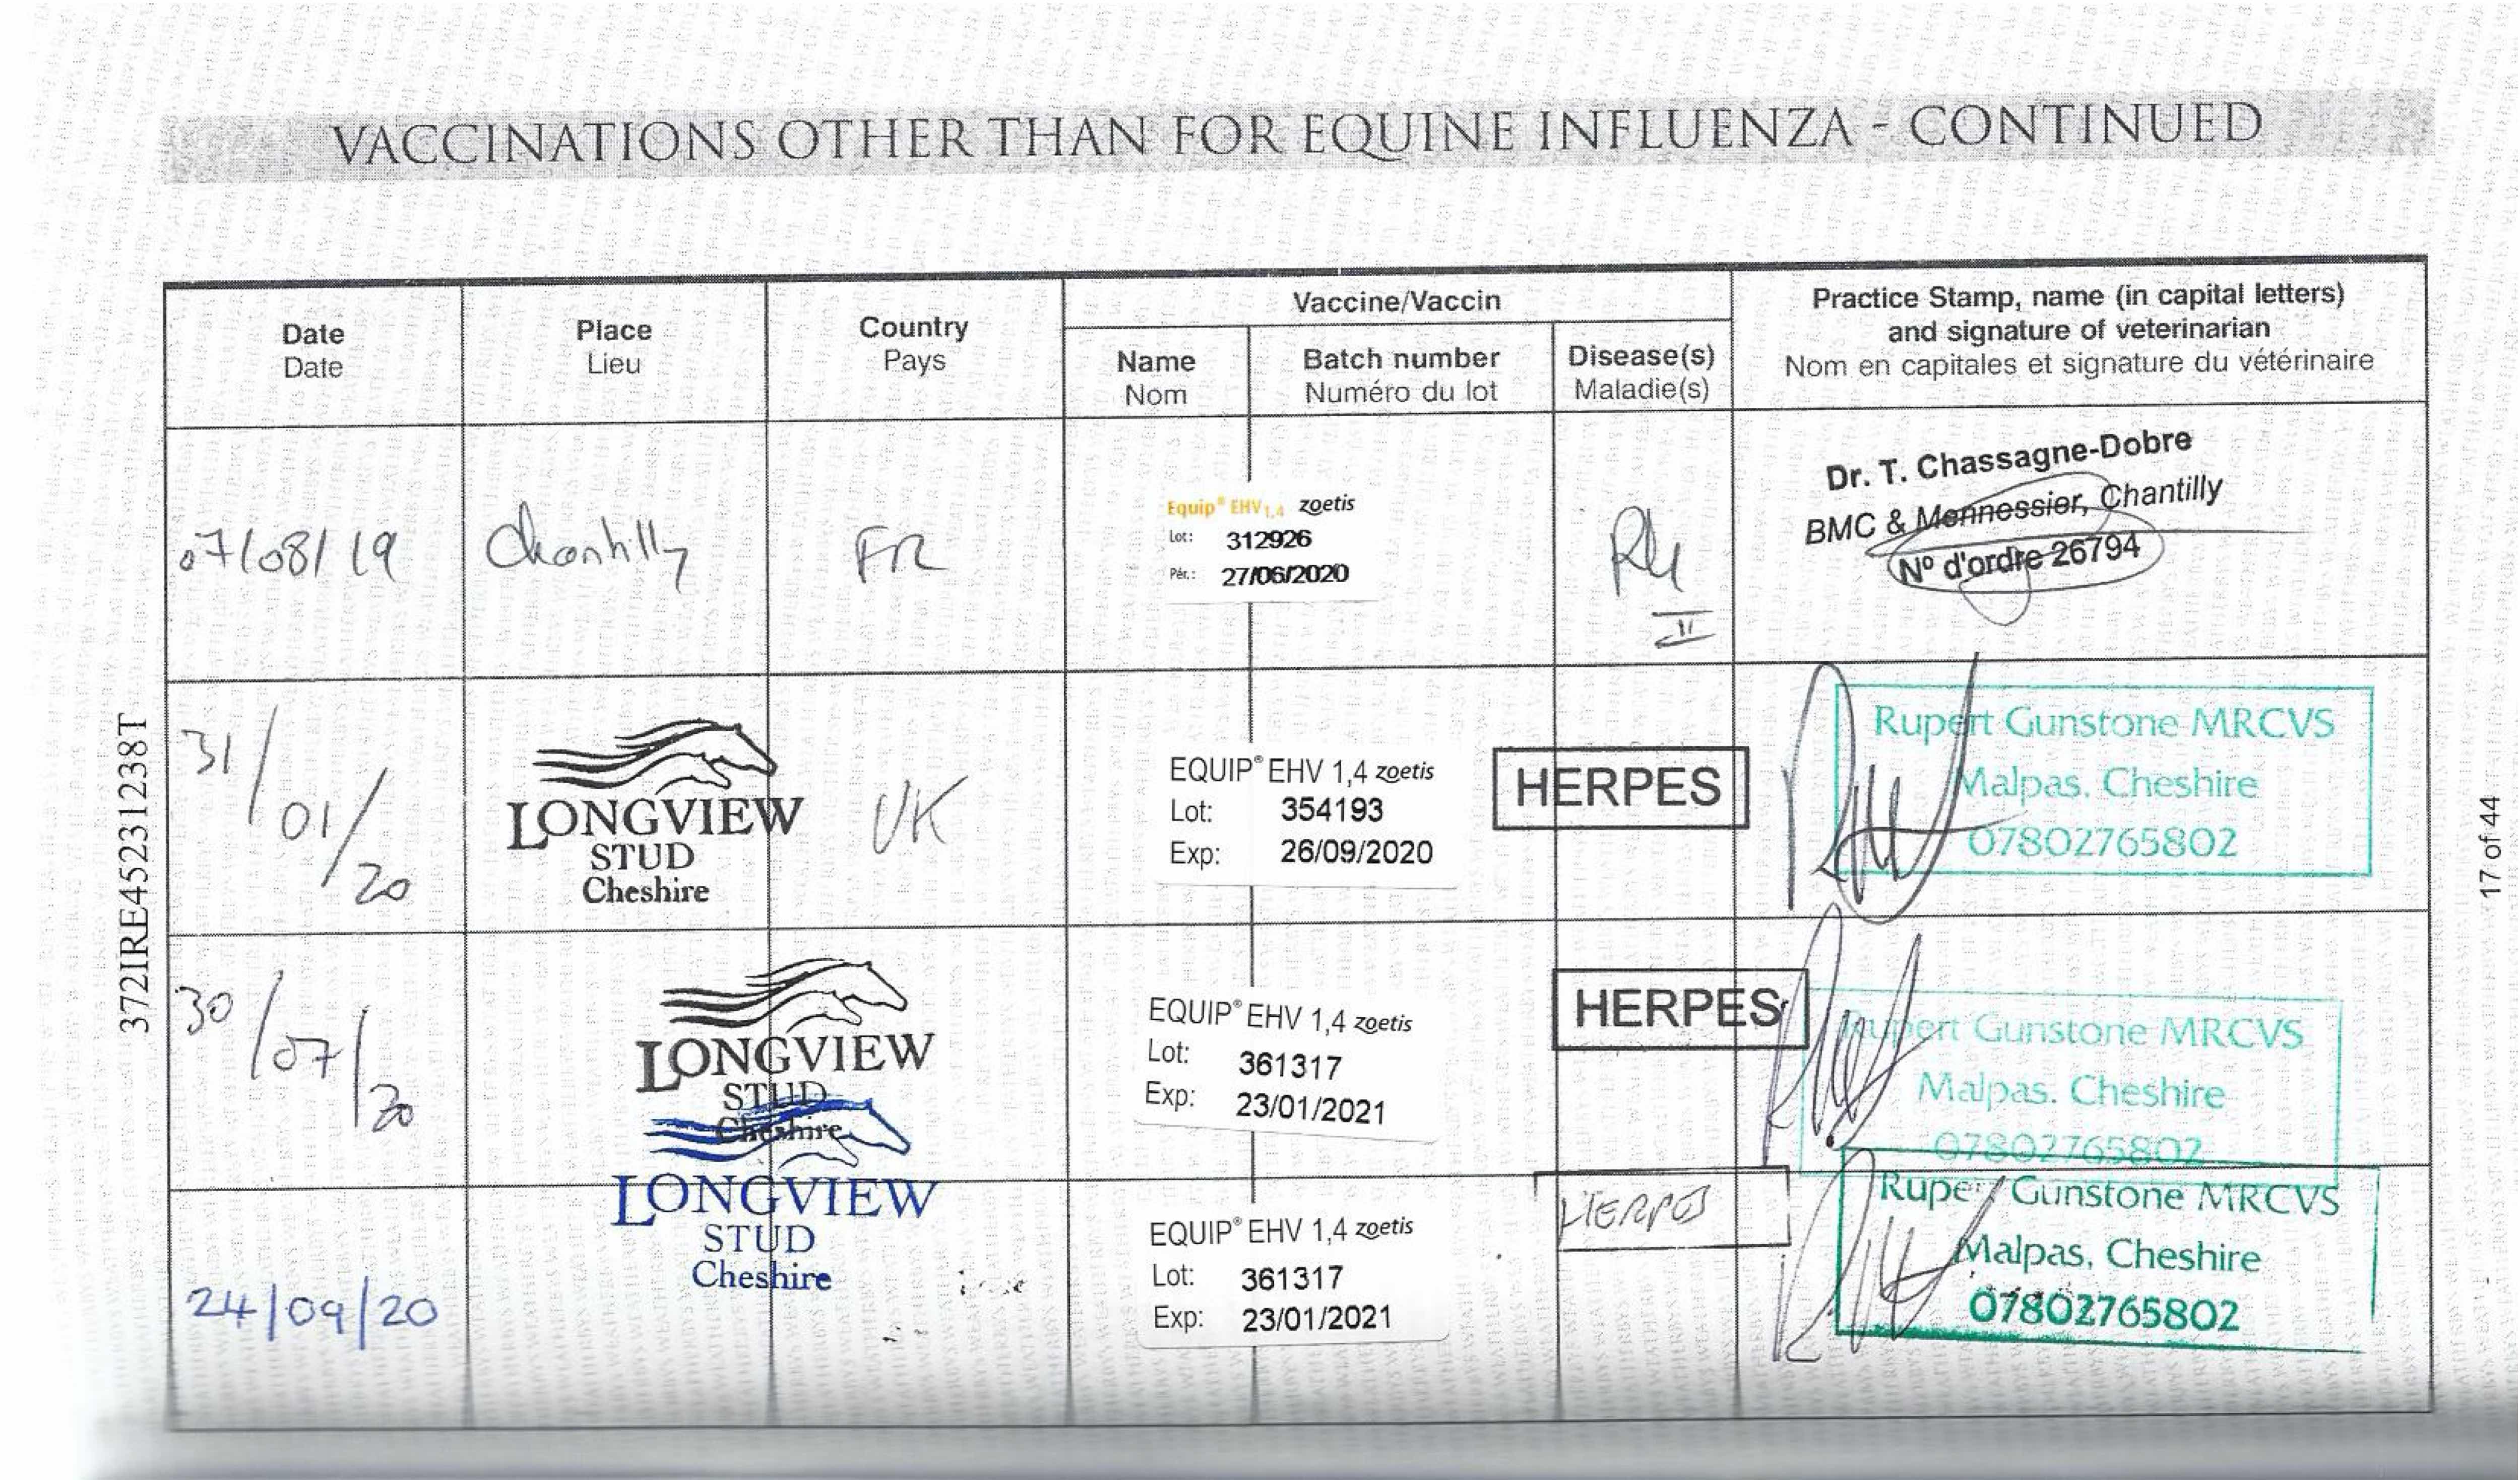 VACCINATIONS OTHER THAN FOR EQUINE INFLUENZA - CONTINUED
Date
Date
Place
Lieu
Country
Pays
Vaccine/Vaccin
Name
Nom
Batch number
Numéro du lot
Disease(s)
Maladie(s)
Practice Stamp, name (in capital letters)
and signature of veterinarian
Nom en capitales et signature du vétérinaire
07/08/19
Chantilly
FR
Equip® EHV1,4 zoetis
Lot: 312926
Pér.: 27/06/2020
Rh
II
Dr. T. Chassagne-Dobre
BMC & Mennessier, Chantilly
Nº d'ordre 26794
31/01/20
LONGVIEW
STUD
Cheshire
UK
EQUIP® EHV 1,4 zoetis
Lot: 354193
Exp: 26/09/2020
HERPES
Rupert Gunstone MRCVS
Malpas, Cheshire
07802765802
30/07/20
LONGVIEW
STUD
Cheshire
EQUIP® EHV 1,4 zoetis
Lot: 361317
Exp: 23/01/2021
HERPES
Rupert Gunstone MRCVS
Malpas. Cheshire
07802765802
24/09/20
LONGVIEW
STUD
Cheshire
EQUIP® EHV 1,4 zoetis
Lot: 361317
Exp: 23/01/2021
HERPES
Rupert Gunstone MRCVS
Malpas, Cheshire
07802765802
372IRE45231238T
17 of 44